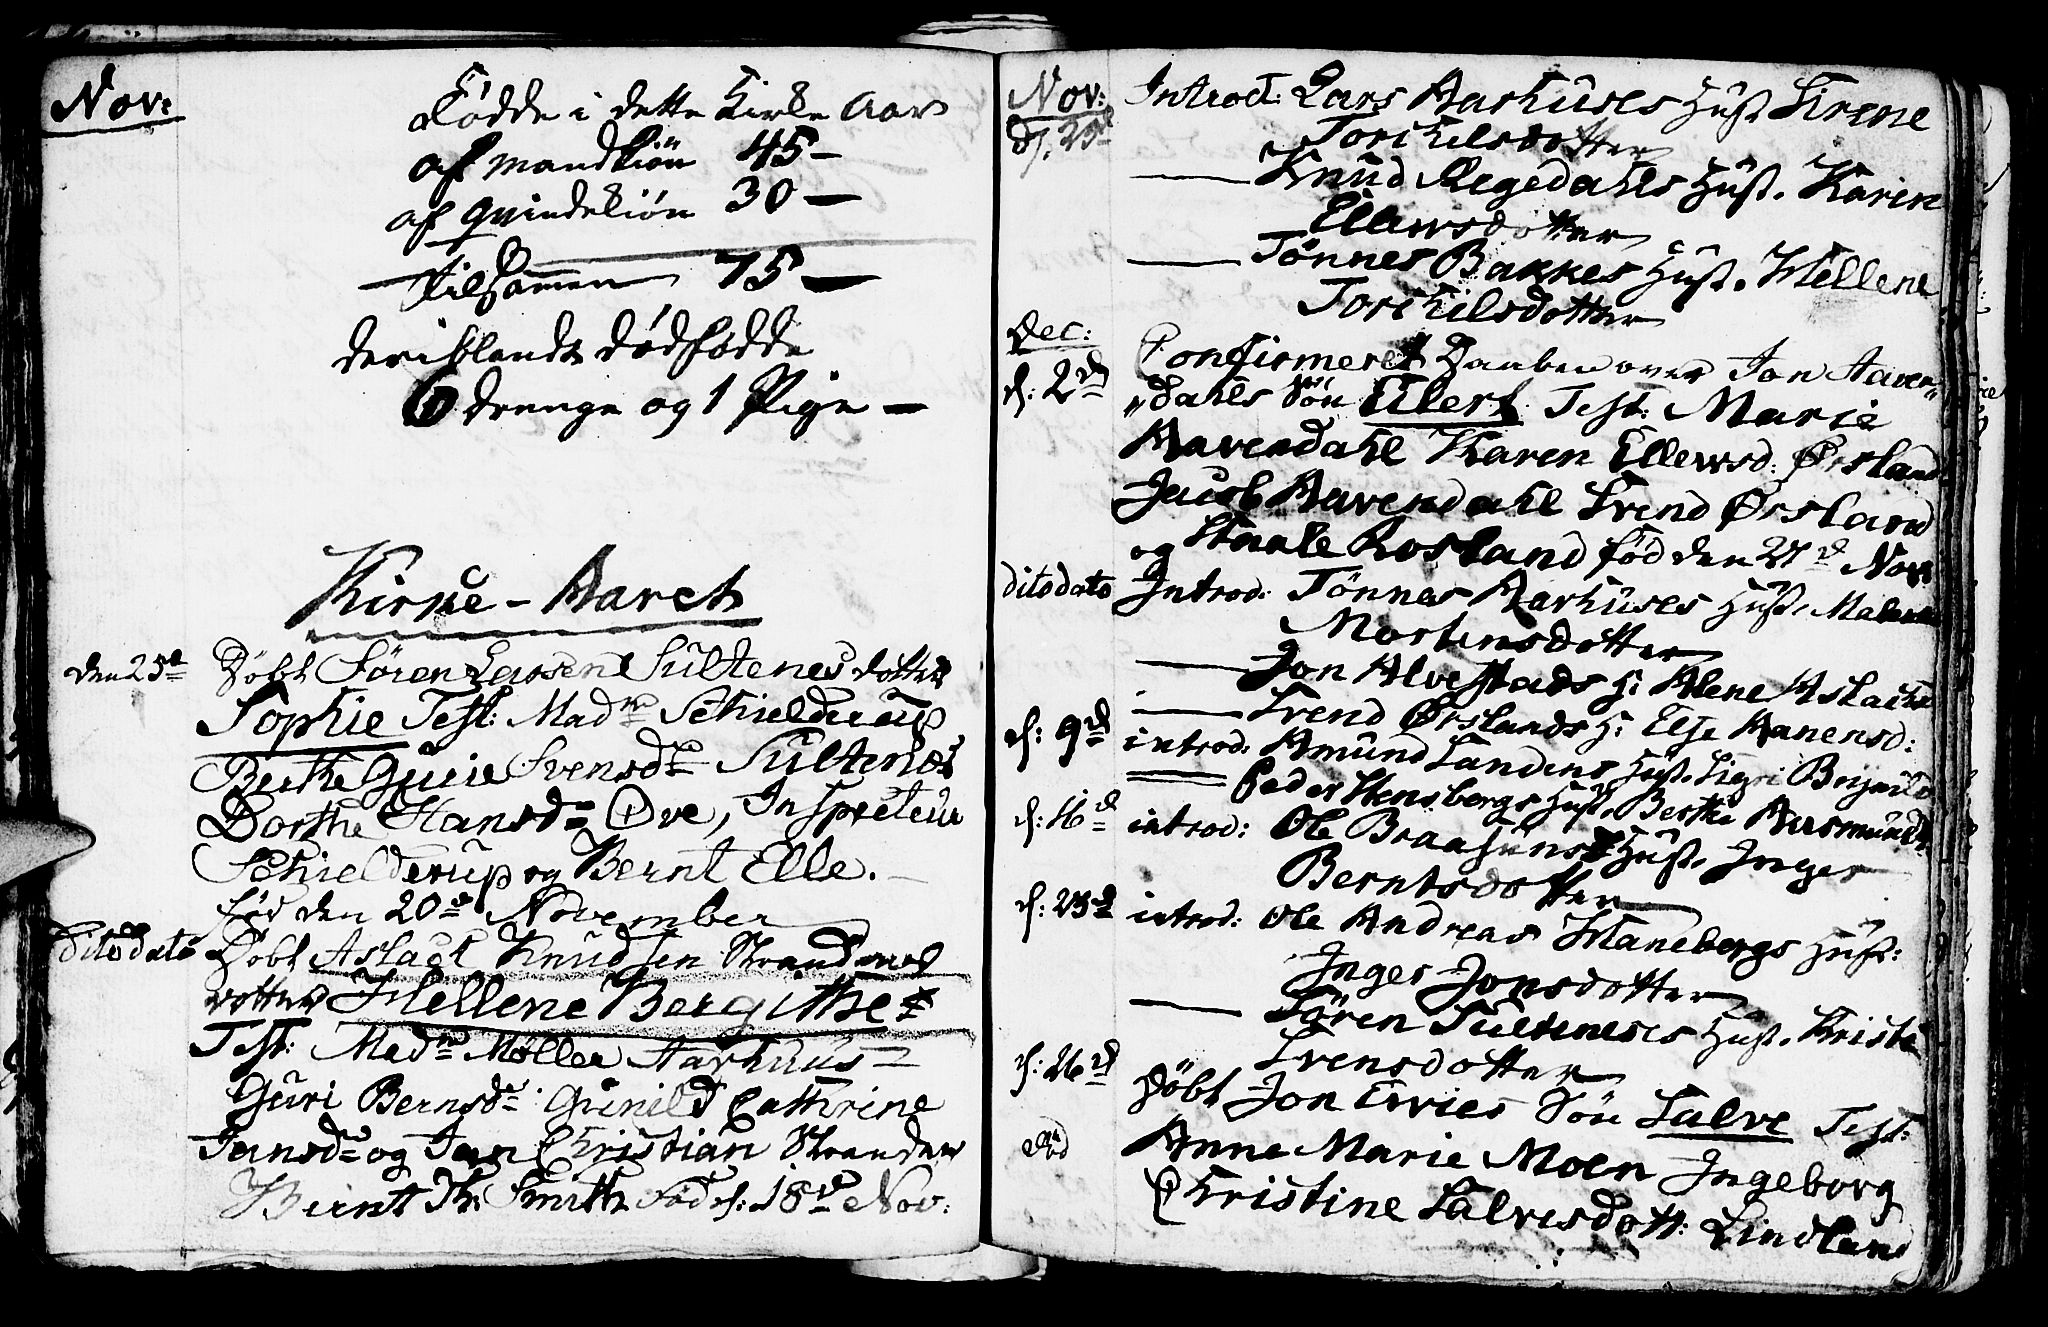 Nov:
Födde i dette Kirke Aar
af Mandkiön 45 —
af Qvindekiön 30 —
Tilsammen 75 —
deriblandt dödfödde
6 drenge og 1 Pige —
Kirke-Aaret
den 25de Döbt Sören Larsen Sultenes dotter
Sophie Test: Madme Schielderup
Berthe Gurie Svensdr Sultenes
Dorthe Hansdr Ove, Inspecteur
Schielderup og Bernt Elle.
föd den 20de November
Dito dato Döbt Aslach Knudsen Strandens
dotter Hellene Bergithe
Test: Madme Möller Aarhuus
Guri Bernsdr: Gunild Cathrine
Jansdr og Jan Christian Stranden
Bernt Th. Smith Föd d: 18de Nov:
Nov:
d: 25de Introd: Lars Aarhuses Hust Sirene
Torkilsdotter
— Knud Regedahls Hust. Karen
Ellevsdotter
— Tönnes Bakkes Hust. Hellene
Torkilsdotter
Dec:
d: 2de Confirmeret Daaben over Jon Aaven„
„dahls Sön Eilert Test: Marie
Aavendahl Karen Ellevsd: Ørsland
Jacob Aavendahl Svend Ørsland
og Staale Rosland föd den 27de Nov:
Dito dato Introd: Tönnes Aarhuses Hust. Malene
Mortensdotter
— Jon Alvestads H: Alene Aslachs
— Svend Ørslands H: Else Aanensd:
d: 9de introd: Amund Landens Hust. Sigri
Peder Hensbergs Hust. Berthe Aasmunds
d: 16de introd: Ole Hust. Inger
Berntsdotter
d: 23de introd: Ole Andreas Hanebergs Hust:
Inger Jonsdotter
— Sören Sulteneses Hust. Kristi
Svensdotter
d: 26de Döbt Jon Ervies Sön Salve Test:
Anne Marie Moen Ingeborg
Christine Salvesdott: Lindland